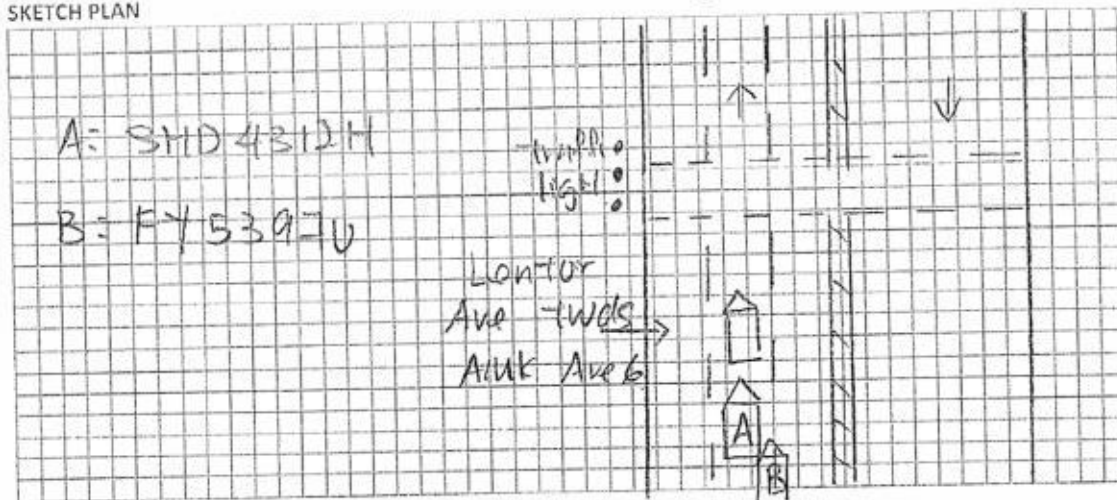 SKETCH PLAN
A: SHD 4312H
B: FY 5397U
traffic
light
Lentor
Ave twds
AMK Ave 6
A
B